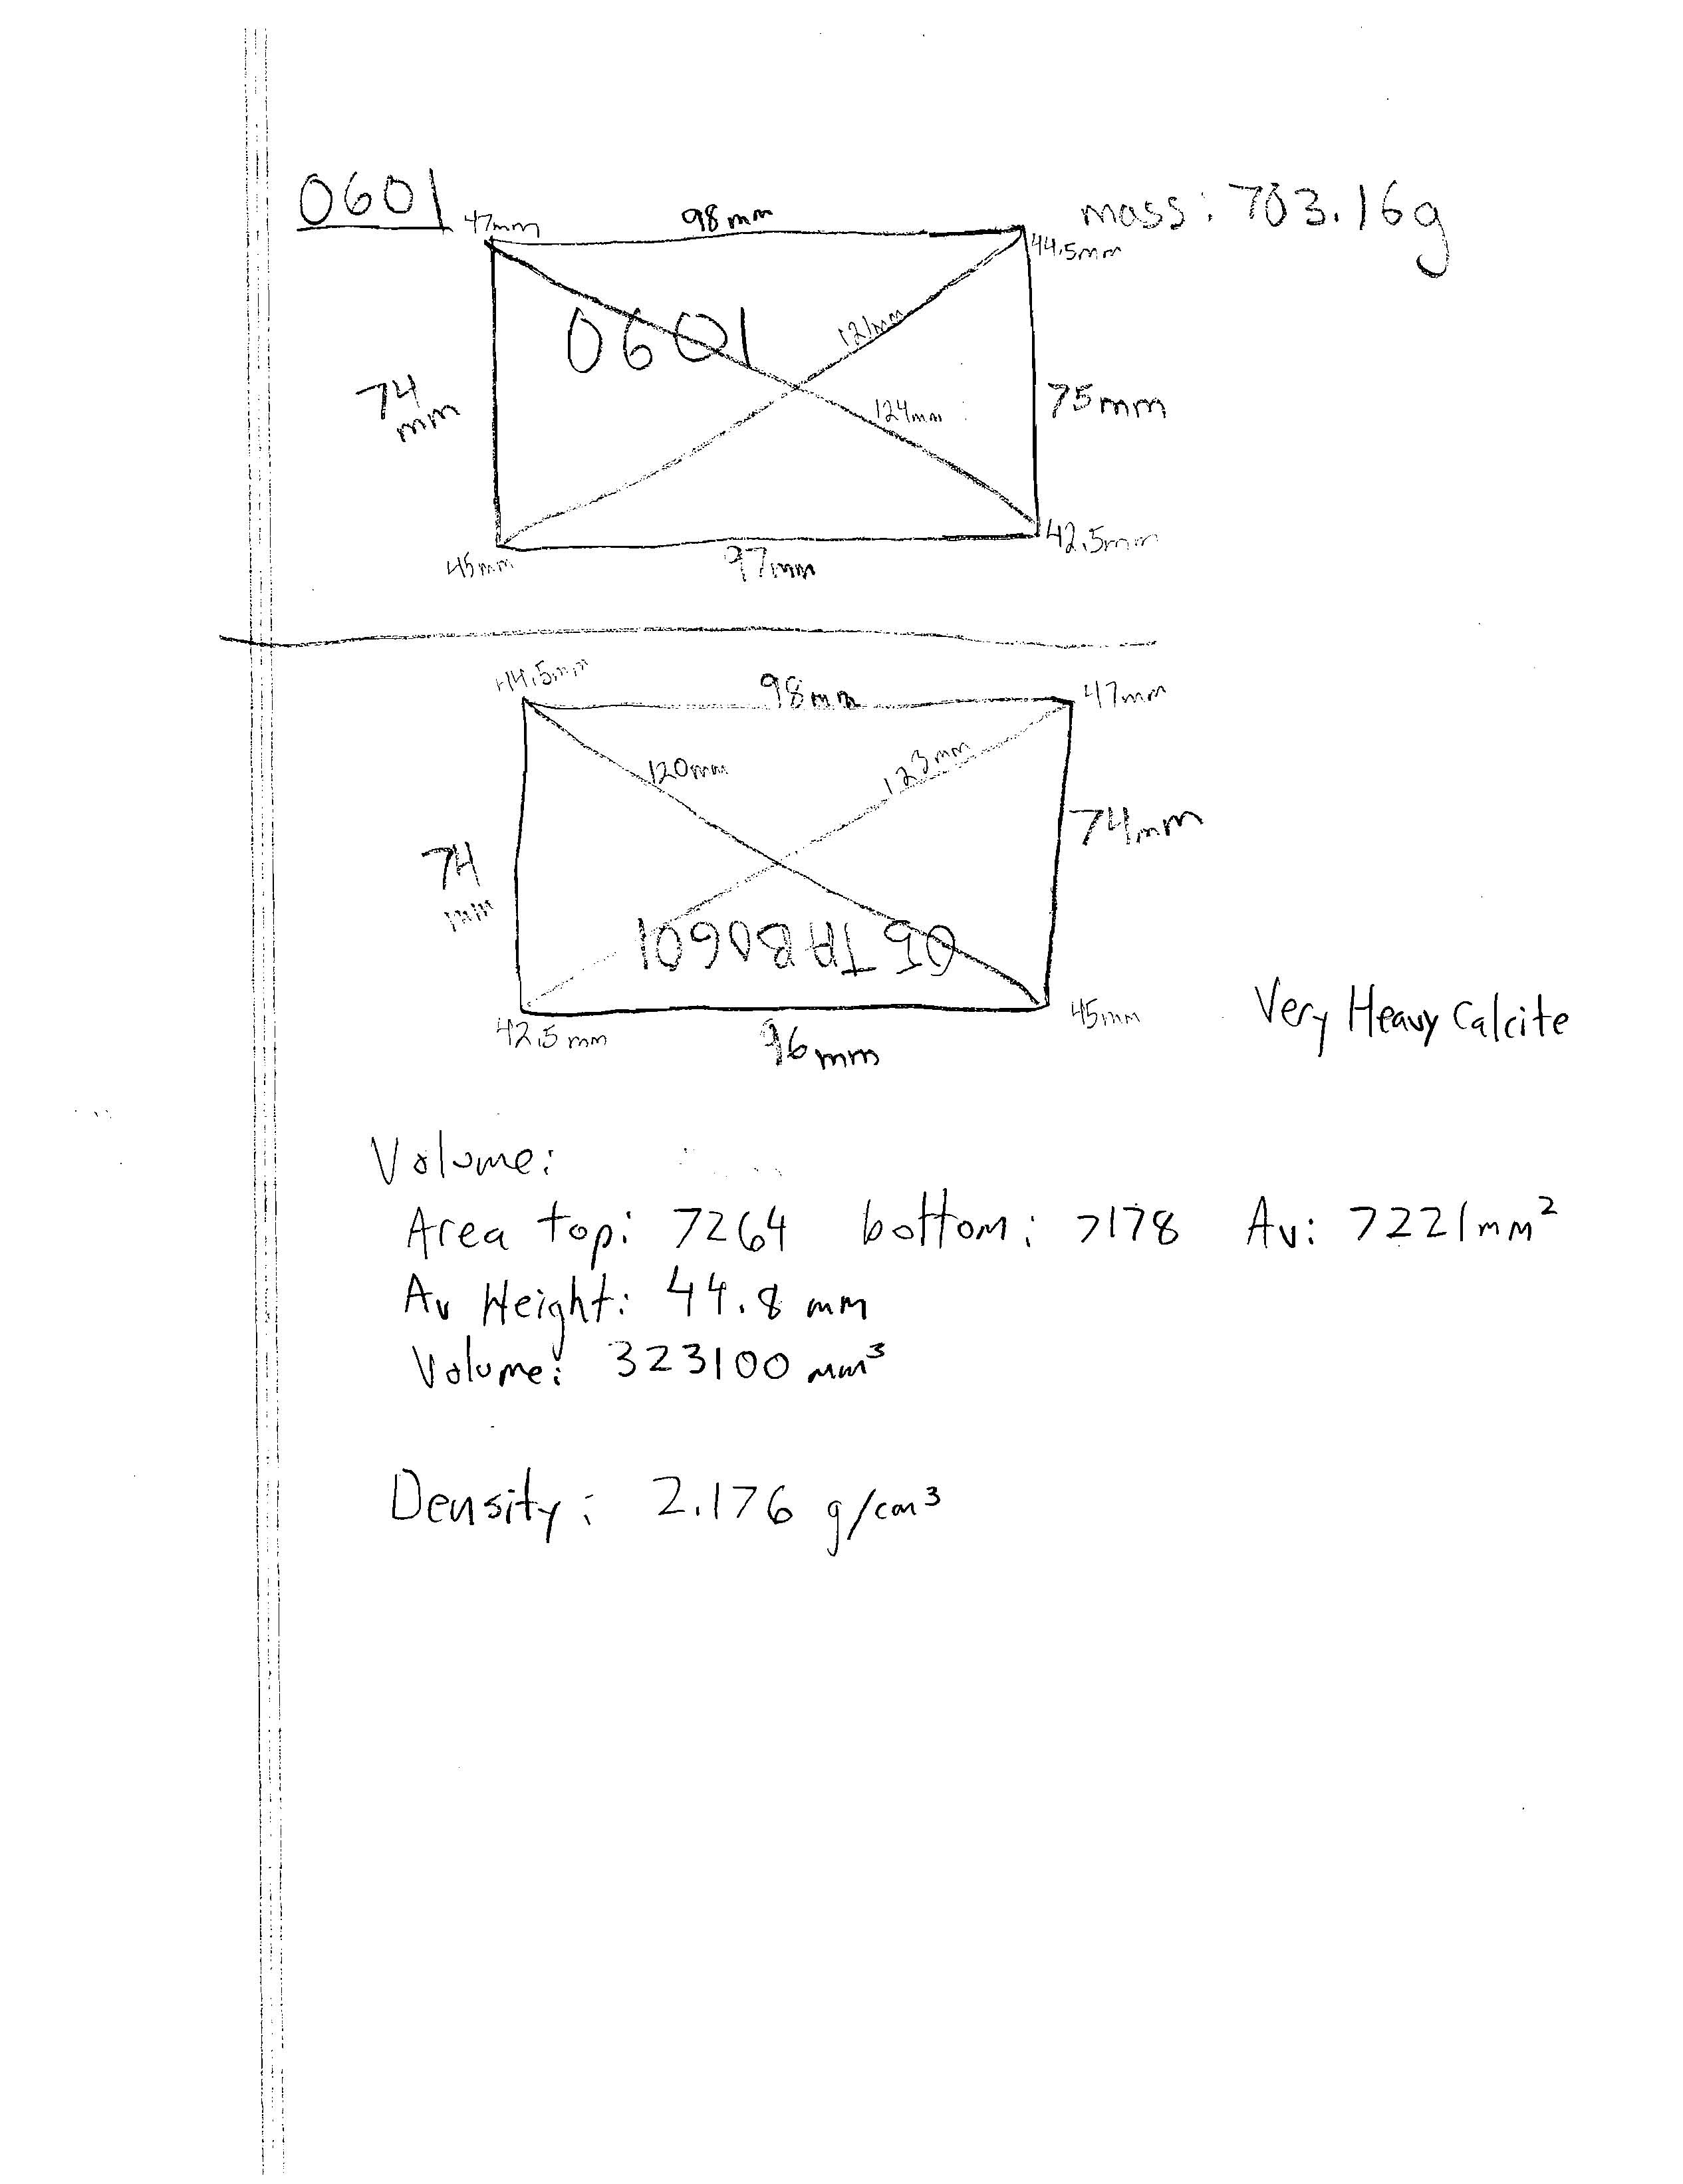 0601
mass: 703.16g
47mm
98mm
44.5mm
0601
121mm
74 mm
124mm
75mm
45mm
97mm
42.5mm
44.5mm
98mm
47mm
120mm
123mm
74 mm
74mm
05TAB0601
42.5mm
96mm
45mm
Very Heavy Calcite
Volume:
Area top: 7264 bottom: 7178 Av: 7221mm²
Av Height: 44.8 mm
Volume: 323100 mm³
Density: 2.176 g/cm³